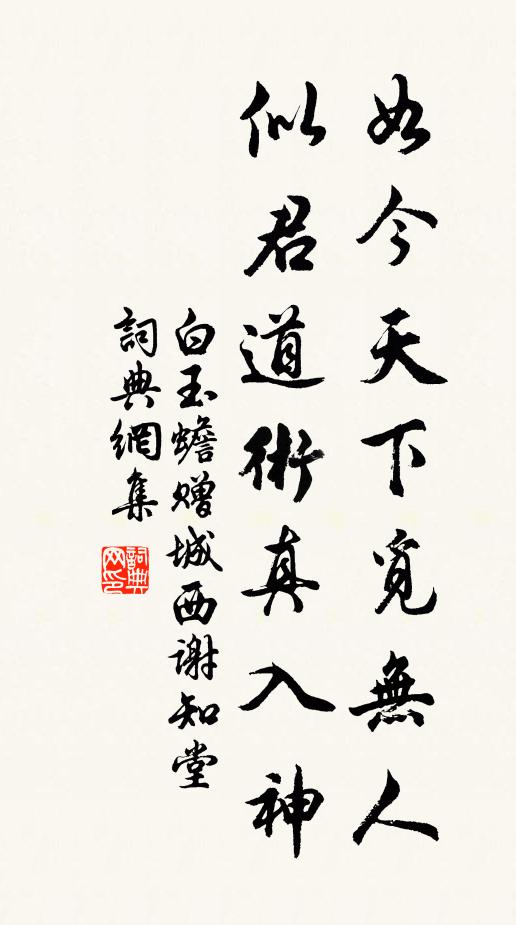 如今天下覓無人
似君道術真入神
白玉蟾贈城西謝知堂
詞典網集
詞典網印